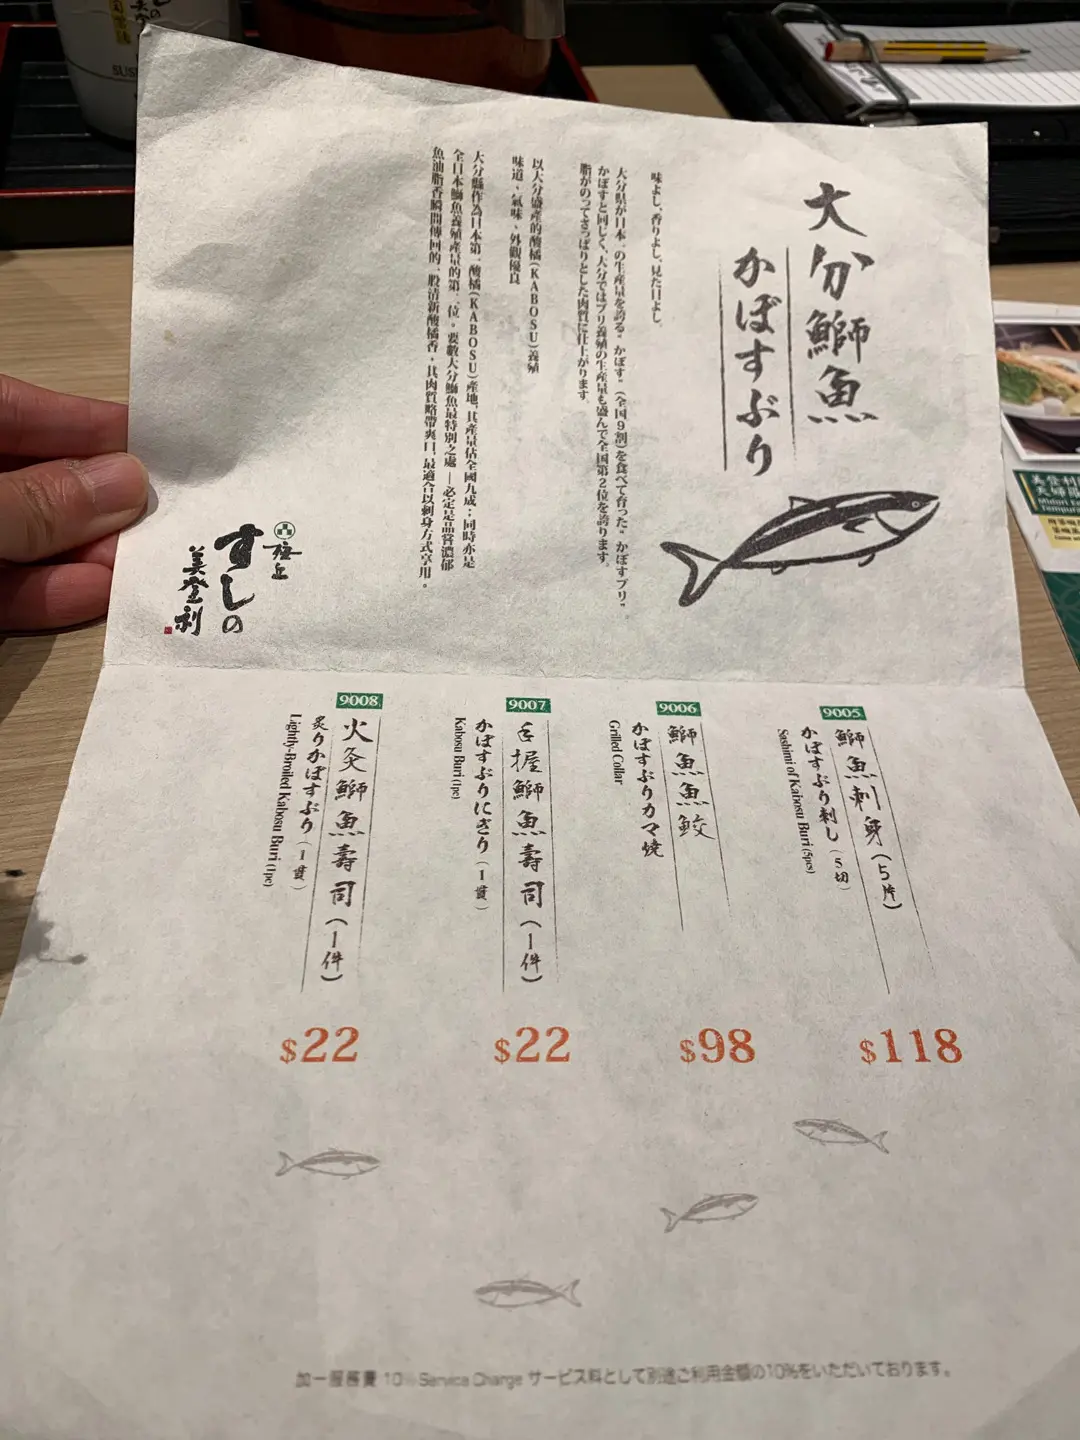 大分鰤魚
かぼすぶり
味よし、香りよし、見た目よし。
大分県が日本一の生産量を誇る“かぼす”（全国9割）を食べて育った“かぼすブリ”。
かぼすと同じく、大分ではブリ養殖の生産量も盛んで全国第2位を誇ります。
脂がのってさっぱりとした肉質に仕上がります。
以大分盛產的酸橘(KABOSU)養殖
味道、氣味、外觀優良
大分縣作為日本第一酸橘(KABOSU)產地，其產量佔全國九成；同時亦是
全日本鰤魚養殖產量的第二位。要數大分鰤魚最特別之處—必定是品嘗濃郁
魚油脂香瞬間傳回的一股清新酸橘香，其肉質略帶爽口，最適合以刺身方式享用。
極上
すしの
美登利
9005
鰤魚刺身（5片）
かぼすぶり刺し（5切）
Sashimi of Kabosu Buri (5pcs)
$118
9006
鰤魚魚鮫
かぼすぶりカマ焼
Grilled Collar
$98
9007
手握鰤魚壽司（1件）
かぼすぶりにぎり（1貫）
Kabosu Buri (1pc)
$22
9008
火炙鰤魚壽司（1件）
炙りかぼすぶり（1貫）
Lightly-Broiled Kabosu Buri (1pc)
$22
加一服務費 10% Service Charge サービス料として別途ご利用金額の10%をいただいております。